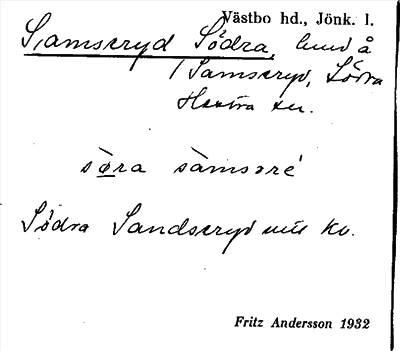 Västbo hd., Jönk. l.
Samseryd Södra, lund å
/ Samseryd, Södra
Hestra sn.
sø̀ra sàmsəré
Södra Sandseryd
Fritz Andersson 1932